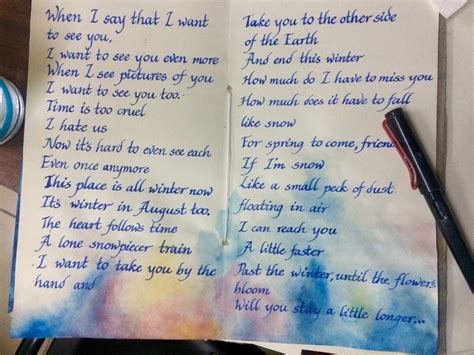 When I say that I want
to see you,
I want to see you even more
When I see pictures of you
I want to see you too.
Time is too cruel
I hate us
Now it's hard to even see each
Even once anymore
This place is all winter now
It's winter in August too.
The heart follows time
A lone snowpiecer train
I want to take you by the
hand and
Take you to the other side
of the Earth
And end this winter
How much do I have to miss you
How much does it have to fall
like snow
For spring to come, friend
If I'm snow
Like a small peck of dust
floating in air
I can reach you
A little faster
Past the winter, until the flowers
bloom
Will you stay a little longer...